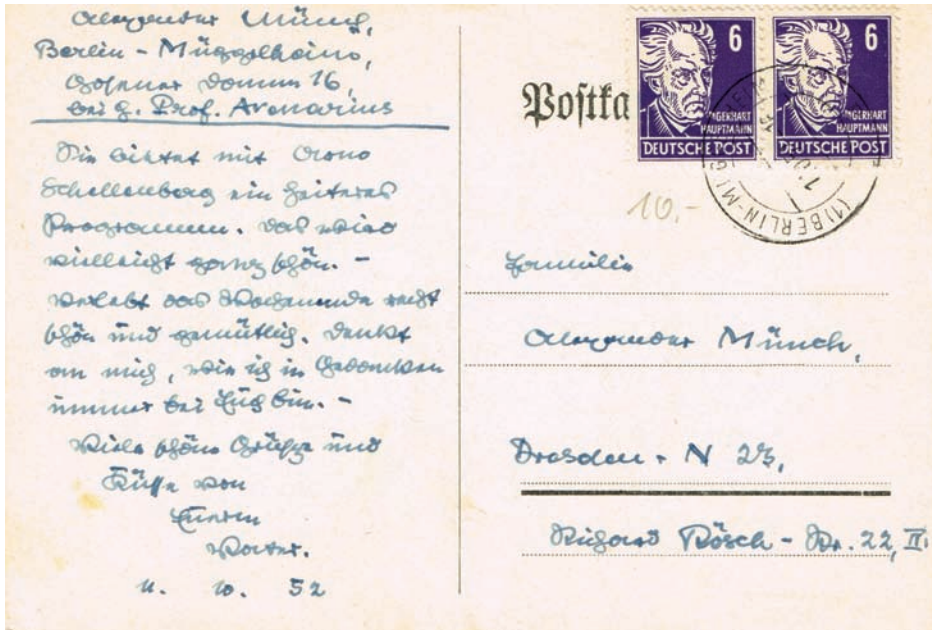 Alexander Münch,
Berlin - Müggelheim,
Gosener Damm 16,
bei H. Prof. Arenarius
Sie bietet mit Arno
Schellenberg ein heiteres
Programm. Das wird
vielleicht ganz schön. –
Verlebt das Wochenende recht
schön und gemütlich. Denkt
an mich, wie ich in Gedanken
immer bei Euch bin. –
Viele schöne Grüße und
Küsse von
Eurem
Vater.
10. 52
Postka
6
GERHART
HAUPTMANN
DEUTSCHE POST
6
GERHART
HAUPTMANN
DEUTSCHE POST
(1) BERLIN-M
10.-
Familie
Alexander Münch,
Dresden - N 23,
Richard Rösch - Str. 22, II.